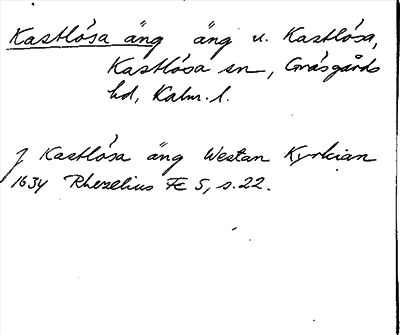 Kastlósa äng äng u. Kastlósa,
Kastlósa sn, Gräsgårds
hd, Kalm. l.
J Kastlósa äng Westan Kyrkian
1634 Rhezelius FE 5, s. 22.